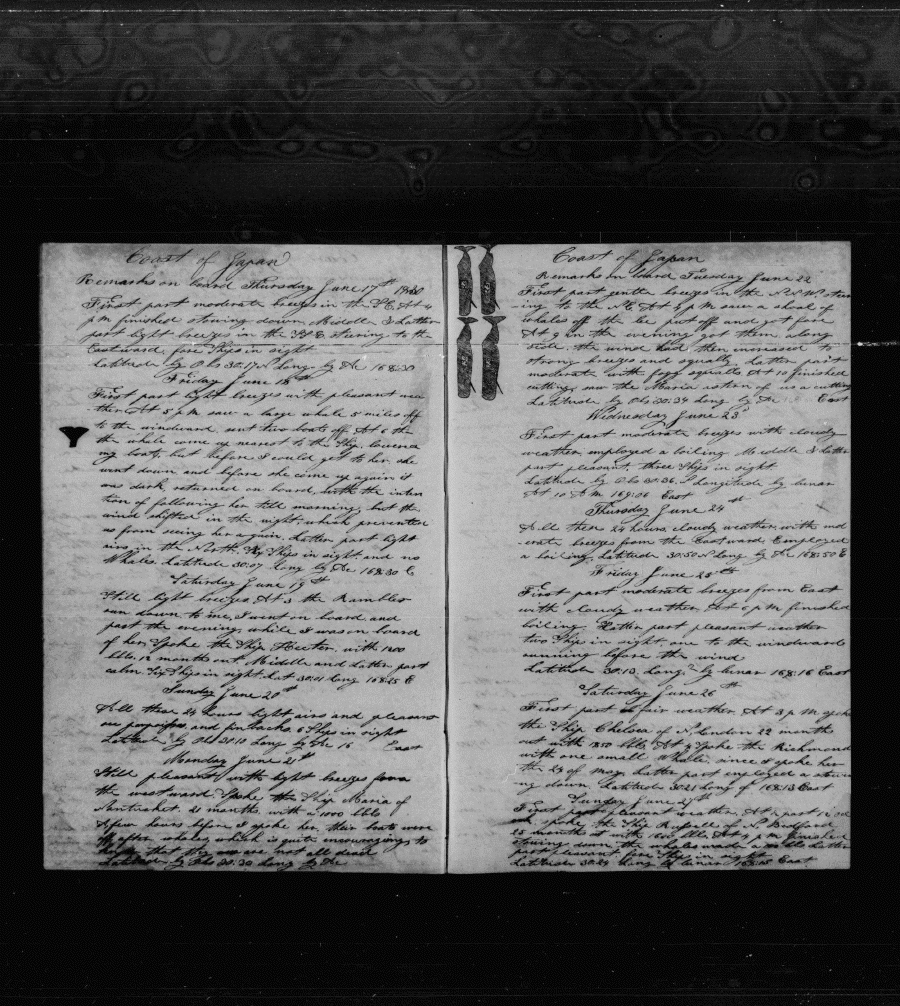 Coast of Japan
Remarks on board Thursday June 17th 1840
First part moderate breezes in the S E At 4
p m finished stowing down Middle & Latter
part light breezes in the S S E steering to the
Eastward, fore Ships in sight
Latitude by Obs 30.17 N Long by Do 168.30
Friday June 18th
First part light breezes with pleasant wea
ther At 5 p m saw a large whale 5 miles off
to the windward, sent two boats off, At 6 the
the whale come up nearest to the Ship, lowered
my boats, but before I could get to her she
went down and before she come up again it
was dark returned on board, with the inten
tion of following her till morning, but the
wind shifted in the night, which prevented
us from seeing her again, Latter part light
airs in the North, Ships in sight and no
Whales, Latitude 30.07 Long by Do 168.30 E
Saturday June 19th
Still light breezes At 3 the Rambler
ran down to me, I went on board and
past the evening, while I was on board
of her, Spoke the Ship Hector with 1200
bbls, 12 months out, Middle and Latter part
calm Six Ships in sight Lat 30.01 Long 168.15 E
Sunday June 20th
All these 24 hours light airs and pleasant
and 6 Ships in sight
Latitude by Obs 30.10 Long by Do 16 East
Monday June 21st
Still pleasant with light breezes from
the westward Spoke the Ship Maria of
Nantucket 21 months, with 1000 bbls
A few hours before I spoke her, their boats were
off after whales which is quite encouraging to
that they are not all dead
Latitude by Obs 30.30 Long by Do
Coast of Japan
Remarks on board Tuesday June 22
First part gentle breezes in the N N W steer
ing to the N E At 4 p m saw a shoal of
whales off the lee put off and got fore
At 9 in the evening got them along
side the wind had then increased to
strong breezes and squally, Latter part
moderate with fogg squalls At 10 finished
cutting saw the Maria astern of us a cutting
Latitude by Obs 30.34 Long by Do East
Wednesday June 23d
First part moderate breezes with cloudy
weather employed a boiling Meiddle & Latter
part pleasant, three Ships in sight
Latitude by Obs 30.36, & Longitude by lunar
At 10 A M 169.06 East
Thursday June 24 st
All these 24 hours cloudy weather, with mod
erate breezes from the Eastward Employed
a boiling Latitude 30.50 N Long by Do 168.50 E
Friday June 25th
First part moderate breezes from East
with cloudy weather, At 6 p m finished
boiling Latter part pleasant weather
two Ships in sight, one to the windward
running before the wind
Latitude 30.13 Long by lunar 168.16 East
Saturday June 26th
First part fair weather At 3 p m spoke
the Ship Chelsea of N London 22 months
out with 1850 bbls At 4 Spoke the Richmond
with one small Whale, since I spoke her
the 29 of May, Latter part employed a stow
ing down, Latitude 30.21 Long of 168.13 East
Sunday June 27th
First pleasant weather At 2 past 12
spoke the Ship Russell of N Bedford
25 months out with 1800 bbls At 4 p m finished
stowing down, the whales made bbls Latter
part pleasant fore Ships in sight
Latitude 30.24 Long by lunar East